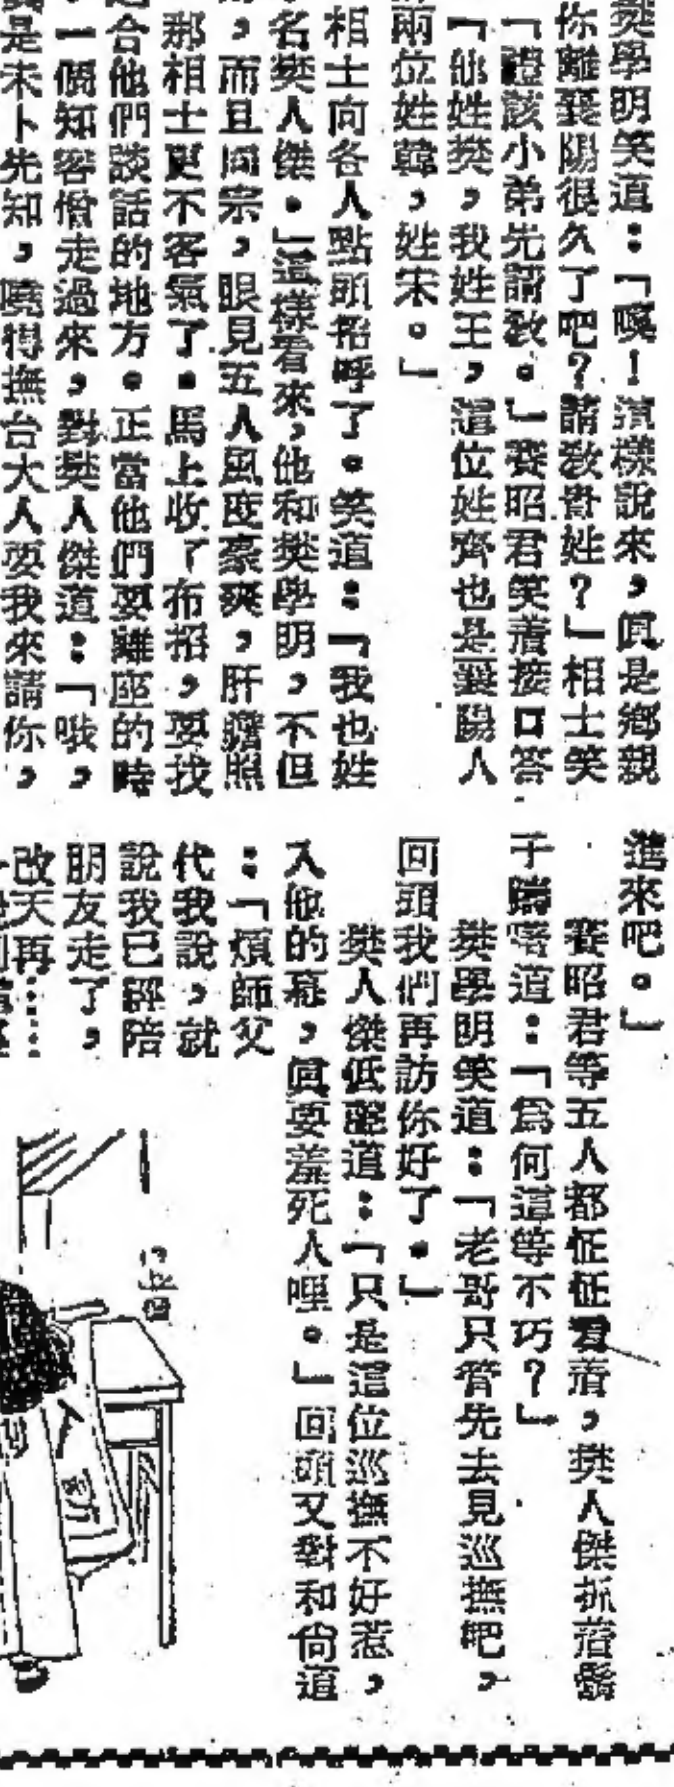 樊學明笑道：「噢！這樣說來，眞是鄉親
你離襄陽很久了吧？請敎貴姓？」相士笑
「體該小弟先請敎。」賽昭君笑着接口答
「他姓樊，我姓王，這位姓齊也是襄陽人
兩位姓韓，姓宋。」
相士向各人點頭招呼了。笑道：「我也姓
名樊人傑。」這樣看來，他和樊學明，不但
，而且同宗，眼見五人風度豪爽，肝膽照
那相士更不客氣了。馬上收了布招，要找
合他們談話的地方。正當他們要離座的時
一個知客僧走過來，對樊人傑道：「哦，
是未卜先知，曉得撫台大人要我來請你，
進來吧。」
賽昭君等五人都怔怔看着，樊人傑抓着鬍
子躊躇道：「爲何這等不巧？」
樊學明笑道：「老哥只管先去見巡撫吧，
回頭我們再訪你好了。」
樊人傑低聲道：「只是這位巡撫不好惹，
入他的幕，眞要羞死人哩。」回頭又對和尙道
：「煩師父
代我說，就
說我已經陪
朋友走了，
改天再……